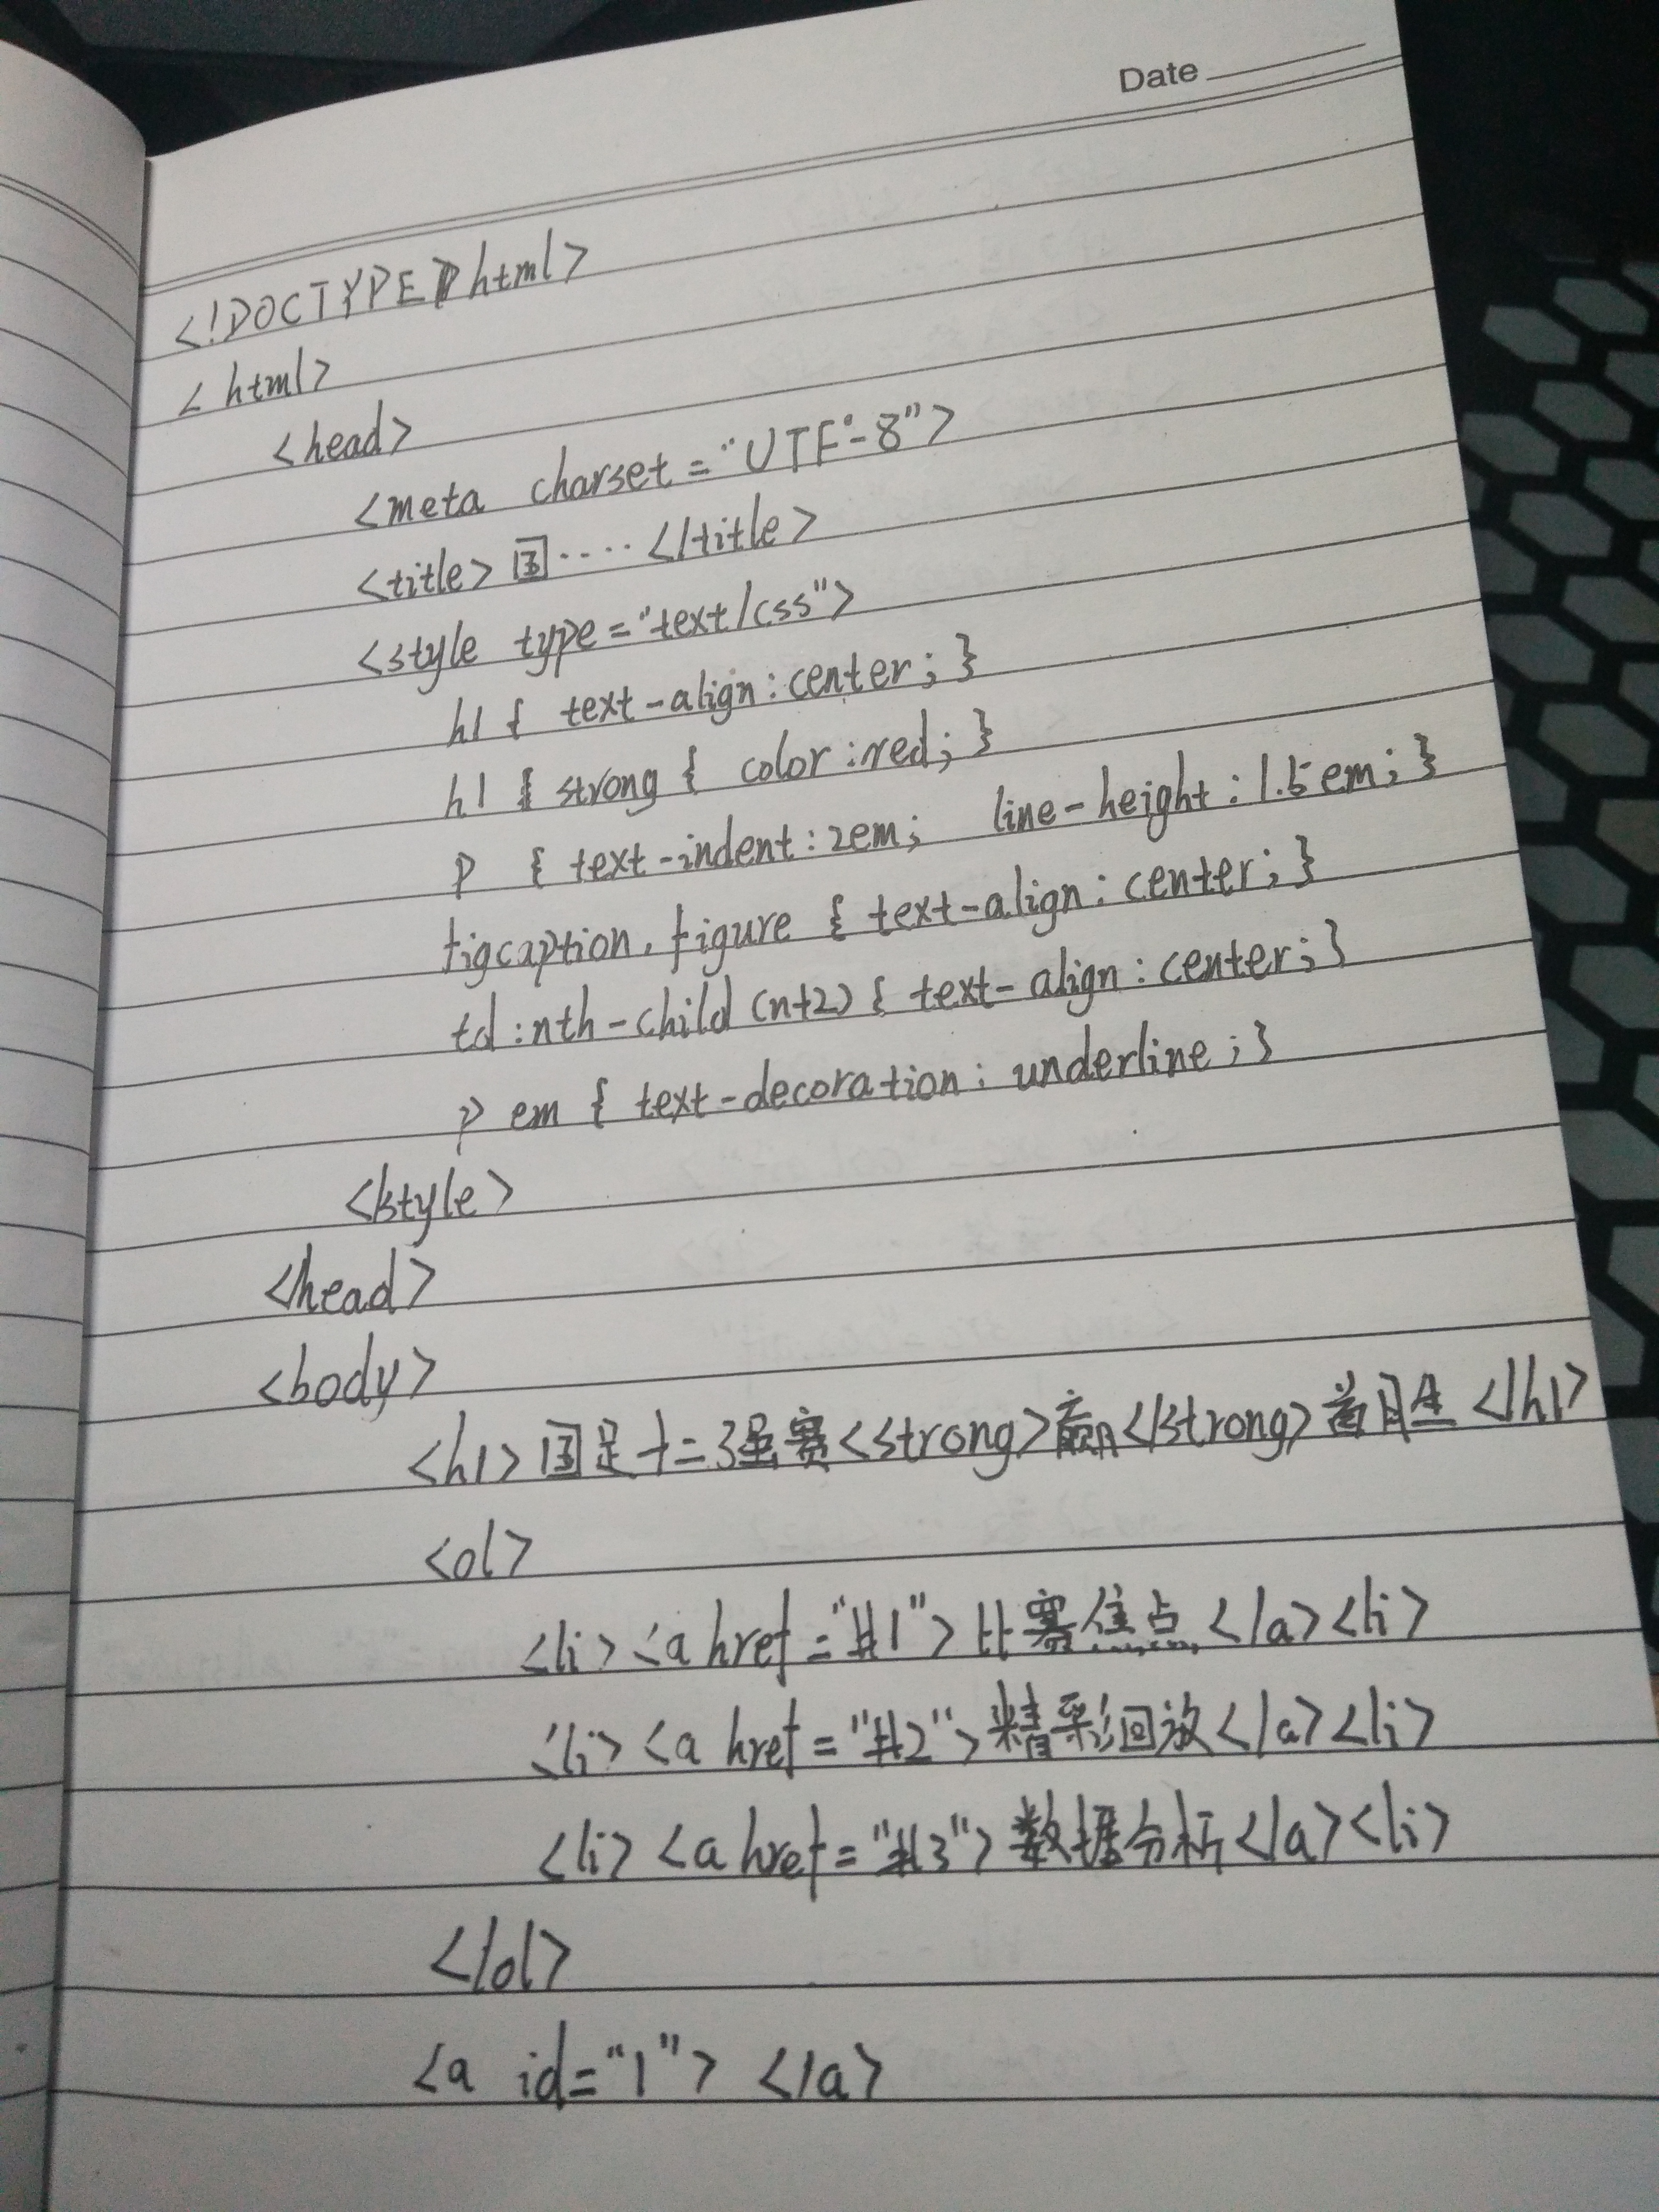 Date
<!DOCTYPE html>
< html>
<head>
<meta charset="UTF-8">
<title>国····</title>
<style type="text/css">
h1 { text-align:center; }
h1 strong { color:red; }
p { text-indent:2em; line-height:1.5em; }
figcaption, figure { text-align:center; }
td:nth-child(n+2) { text-align:center; }
p em { text-decoration: underline; }
</style>
</head>
<body>
<h1>国足十二强赛<strong>赢</strong>首胜</h1>
<ol>
<li><a href="#1">比赛焦点</a><li>
<li><a href="#2">精彩回放</a><li>
<li><a href="#3">数据分析</a><li>
</ol>
<a id="1"> </a>